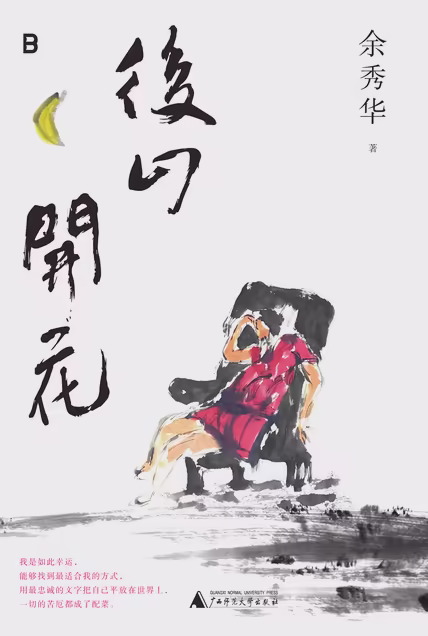 B
余秀华
著
後山
開花
我是如此幸运，
能够找到最适合我的方式，
用最忠诚的文字把自己平放在世界上，
一切的苦厄都成了配菜。
GUANGXI NORMAL UNIVERSITY PRESS
广西师范大学出版社